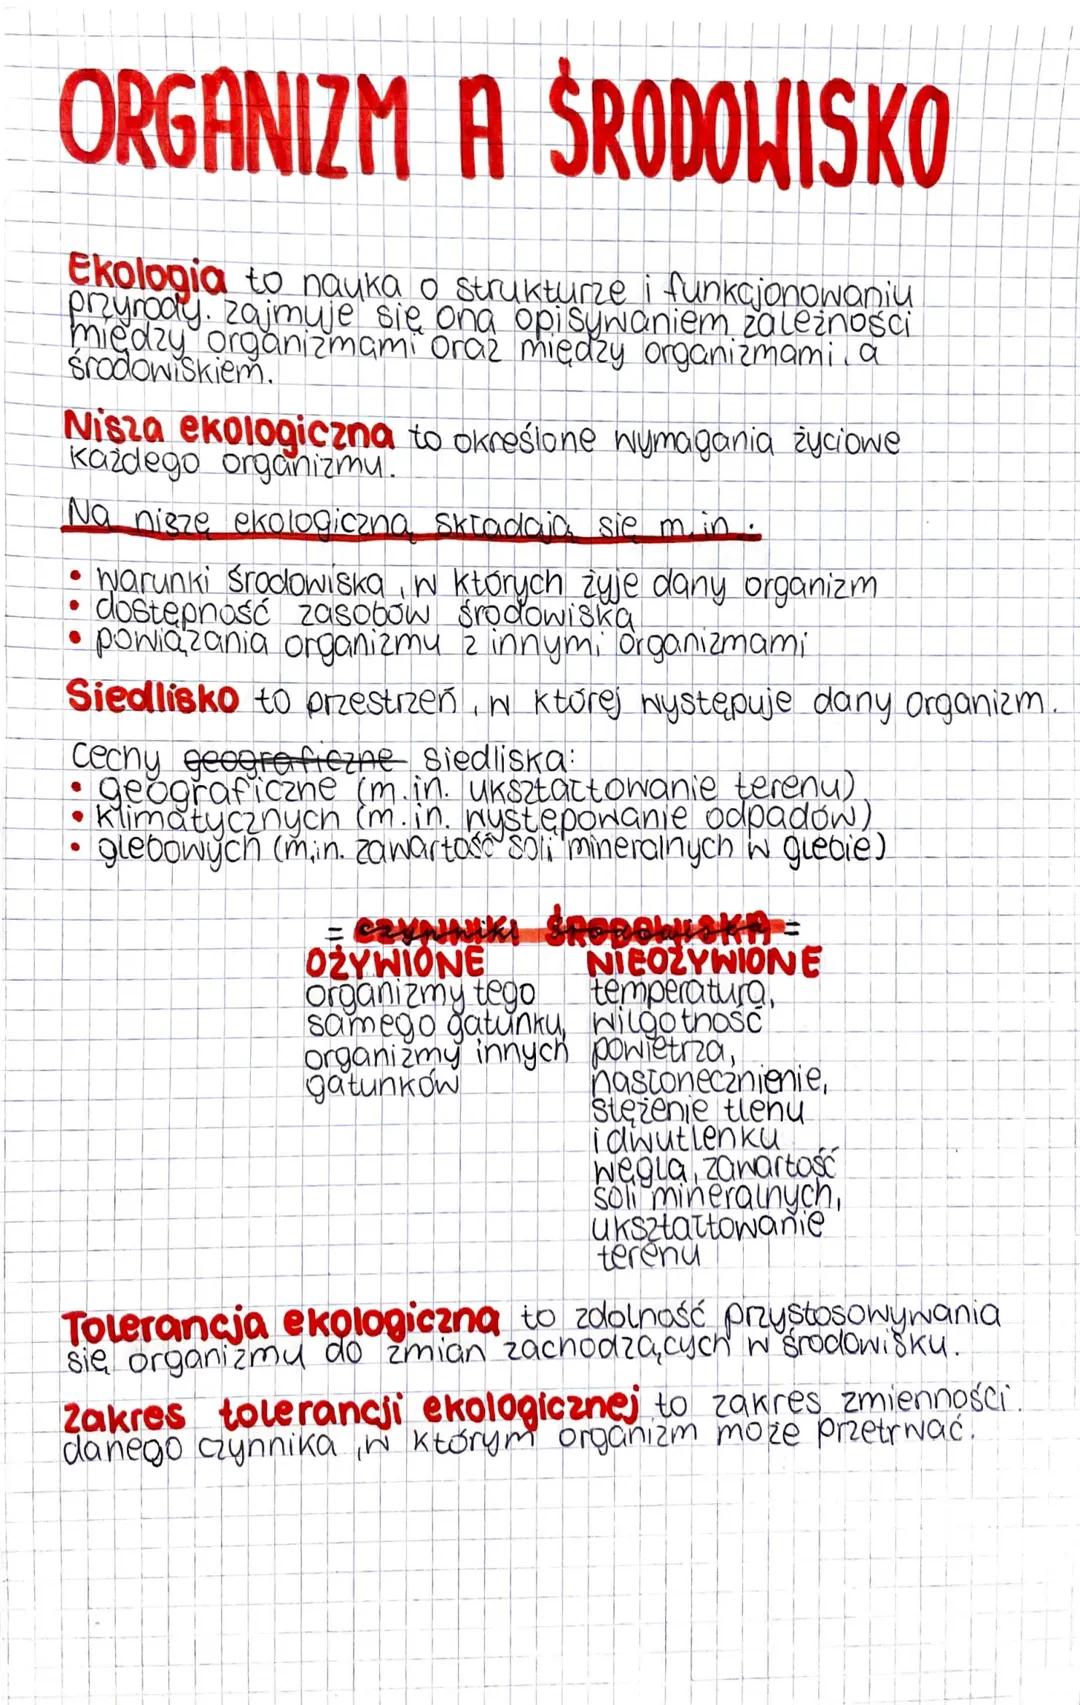 ORGANIZM A ŚRODOWISKO
Ekologia to nauka o strukturze i funkcjonowaniu
przyrody. zajmuje się ona opisywaniem zależności
między organizmami oraz między organizmami, a
środowiskiem.
Nisza ekologiczna to określone wymagania życiowe
każdego organizmu.
Na niszę ekologiczną składają się m.in.:
• warunki środowiska, w których żyje dany organizm
• dostępność zasobów środowiska
• powiązania organizmu z innymi organizmami
Siedlisko to przestrzeń, w której występuje dany organizm.
Cechy geograficzne siedliska:
• geograficzne (m.in. ukształtowanie terenu)
• klimatycznych (m.in. występowanie odpadów)
• glebowych (m.in. zawartość soli mineralnych w glebie)
= CZYNNIKI ŚRODOWISKA =
OŻYWIONE NIEOŻYWIONE
organizmy tego temperatura,
samego gatunku, wilgotność
organizmy innych powietrza,
gatunków nasłonecznienie,
stężenie tlenu
i dwutlenku
węgla, zawartość
soli mineralnych,
ukształtowanie
terenu
Tolerancja ekologiczna to zdolność przystosowywania
się organizmu do zmian zachodzących w środowisku.
Zakres tolerancji ekologicznej to zakres zmienności
danego czynnika, w którym organizm może przetrwać.